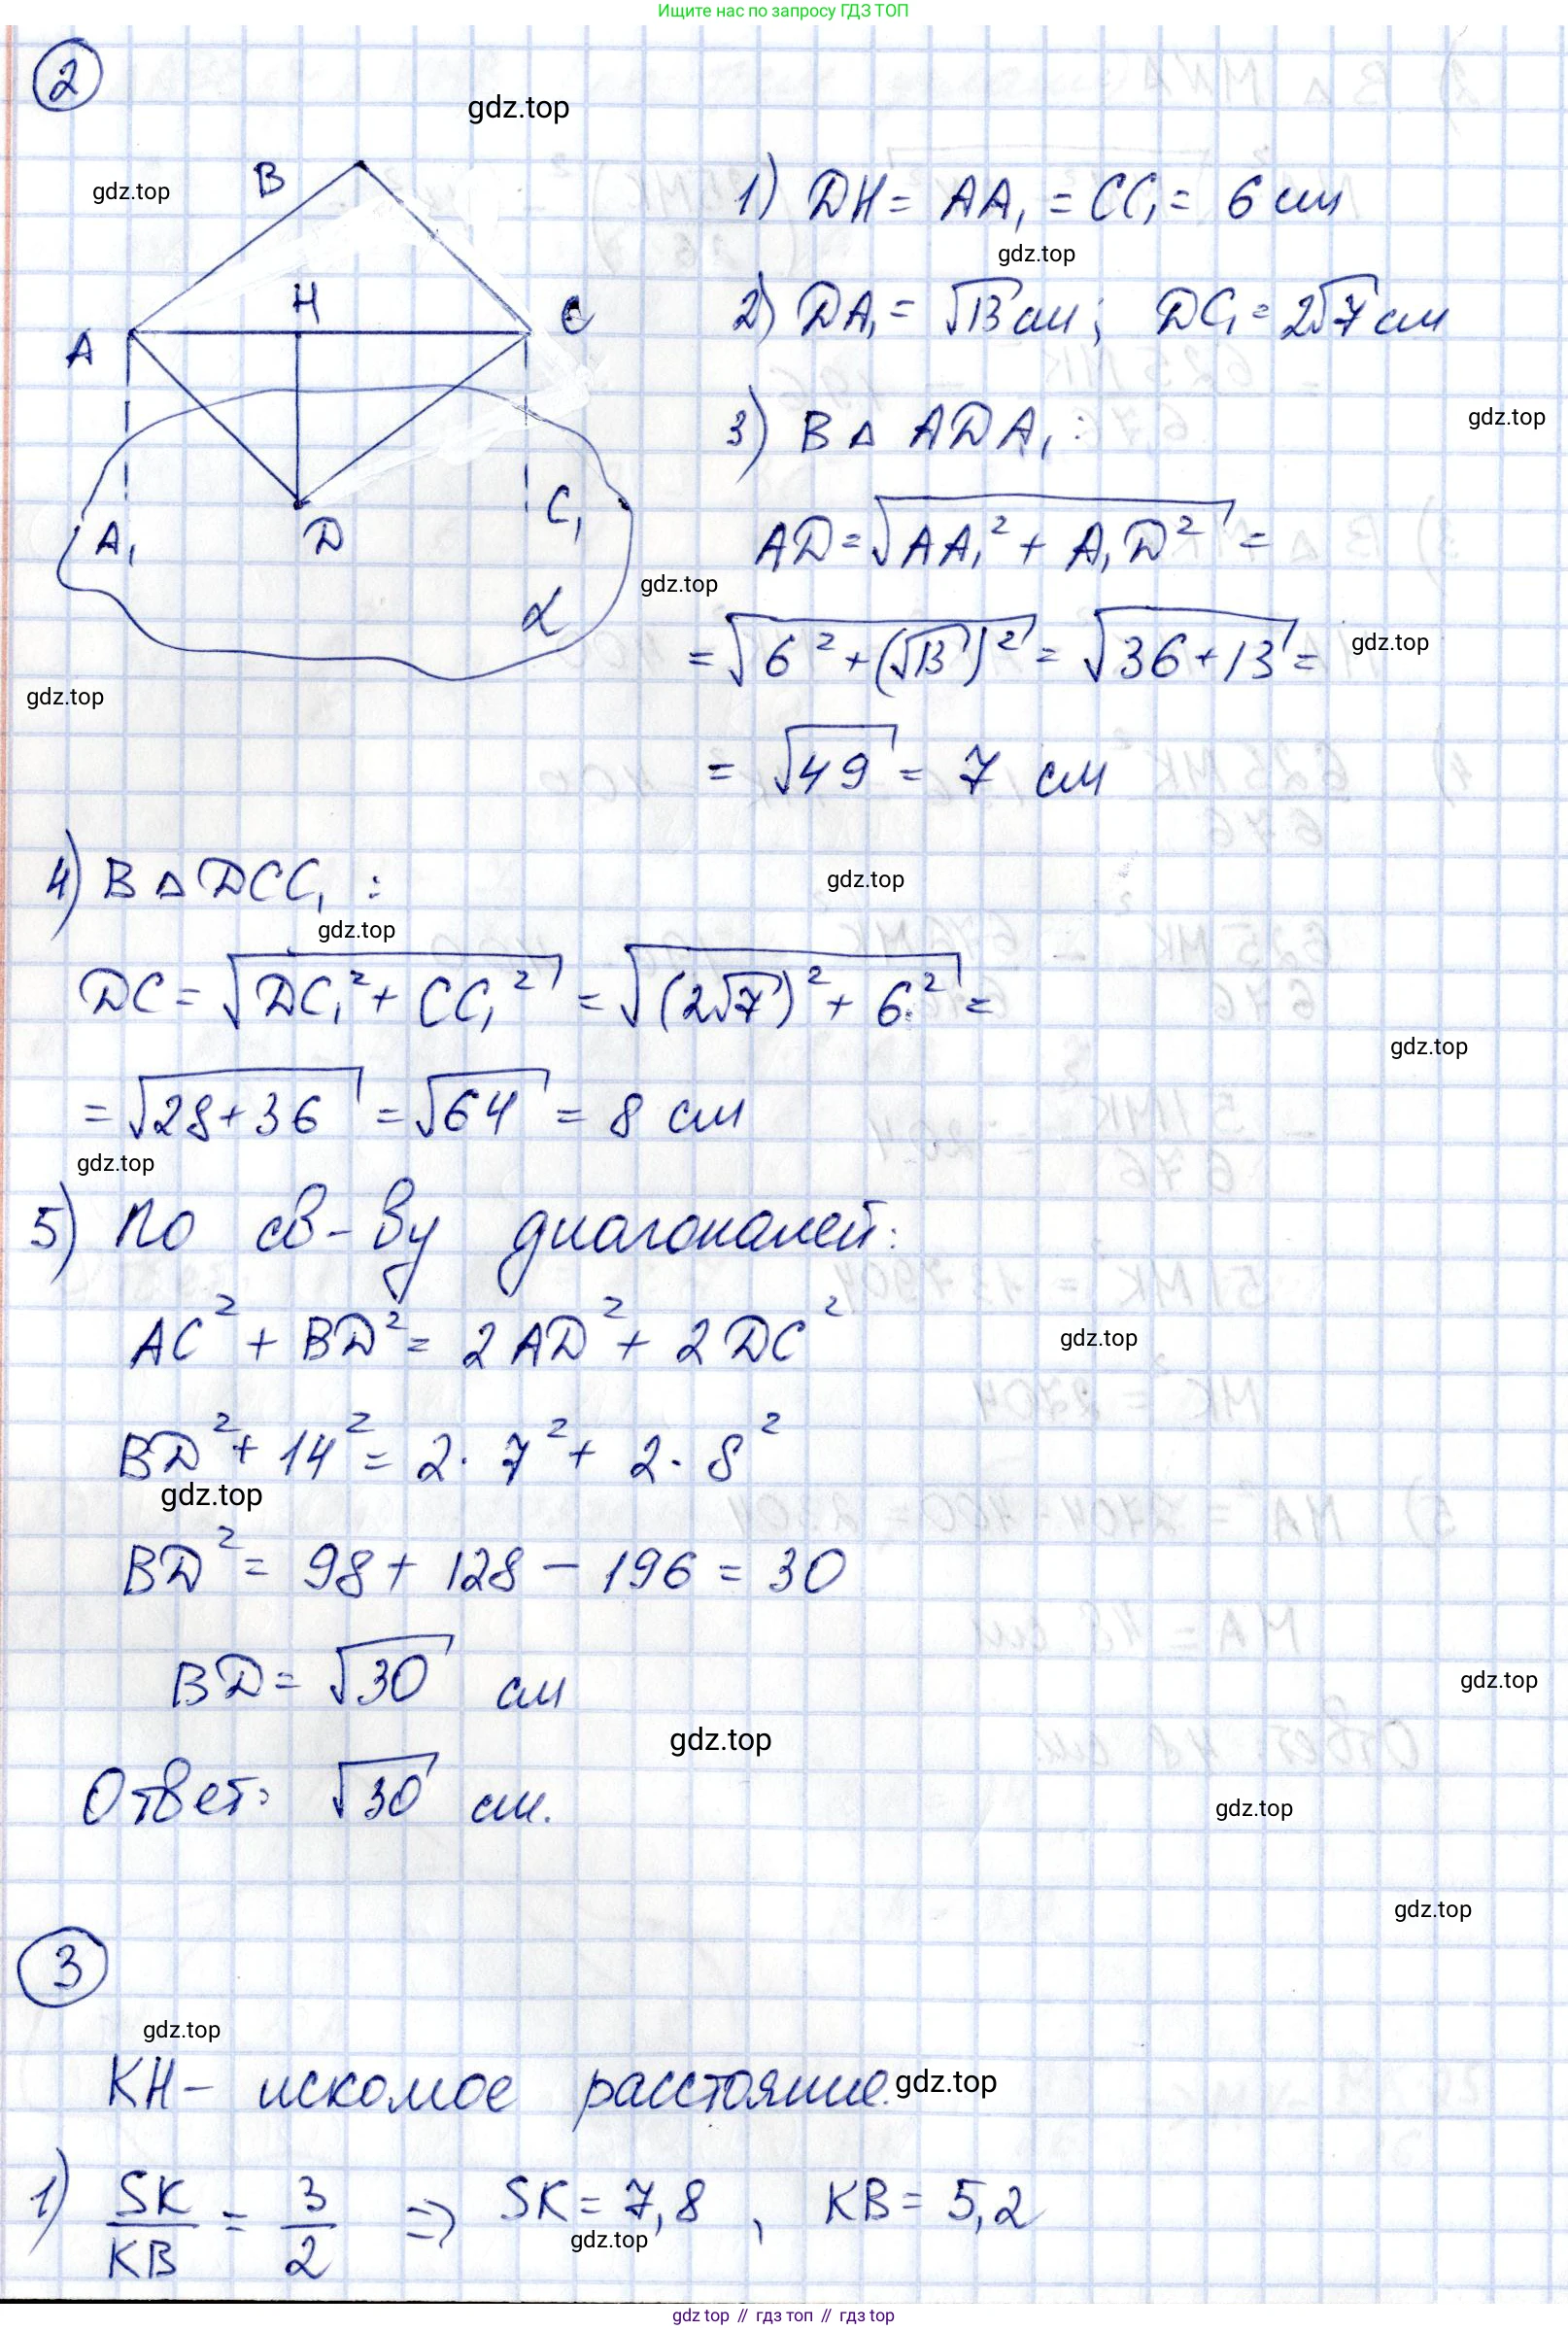 Ищите нас по запросу ГДЗ ТОП
2
gdz.top
B
gdz.top
1) DH = AA₁ = CC₁ = 6 см
gdz.top
H
C
A
2) DA₁ = √13 см; DC₁ = 2√7 см
gdz.top
3) В △ ADA₁:
C₁
A₁
D
AD = √(AA₁² + A₁D²) =
gdz.top
α
= √(6² + (√13)²) = √(36+13) =
gdz.top
gdz.top
= √49 = 7 см
4) В △ DCC₁ :
gdz.top
gdz.top
DC = √(DC₁² + CC₁²) = √((2√7)² + 6²) =
gdz.top
= √(28+36) = √64 = 8 см
gdz.top
5) По св-ву диагоналей:
AC² + BD² = 2AD² + 2DC²
gdz.top
BD² + 14² = 2 · 7² + 2 · 8²
gdz.top
BD² = 98 + 128 − 196 = 30
BD = √30 см
gdz.top
gdz.top
Ответ: √30 см.
gdz.top
gdz.top
3
gdz.top
KH – искомое расстояние.
gdz.top
1) SK/KB = 3/2 ⇒ SK = 7,8 , KB = 5,2
gdz.top
gdz top // гдз топ // гдз top